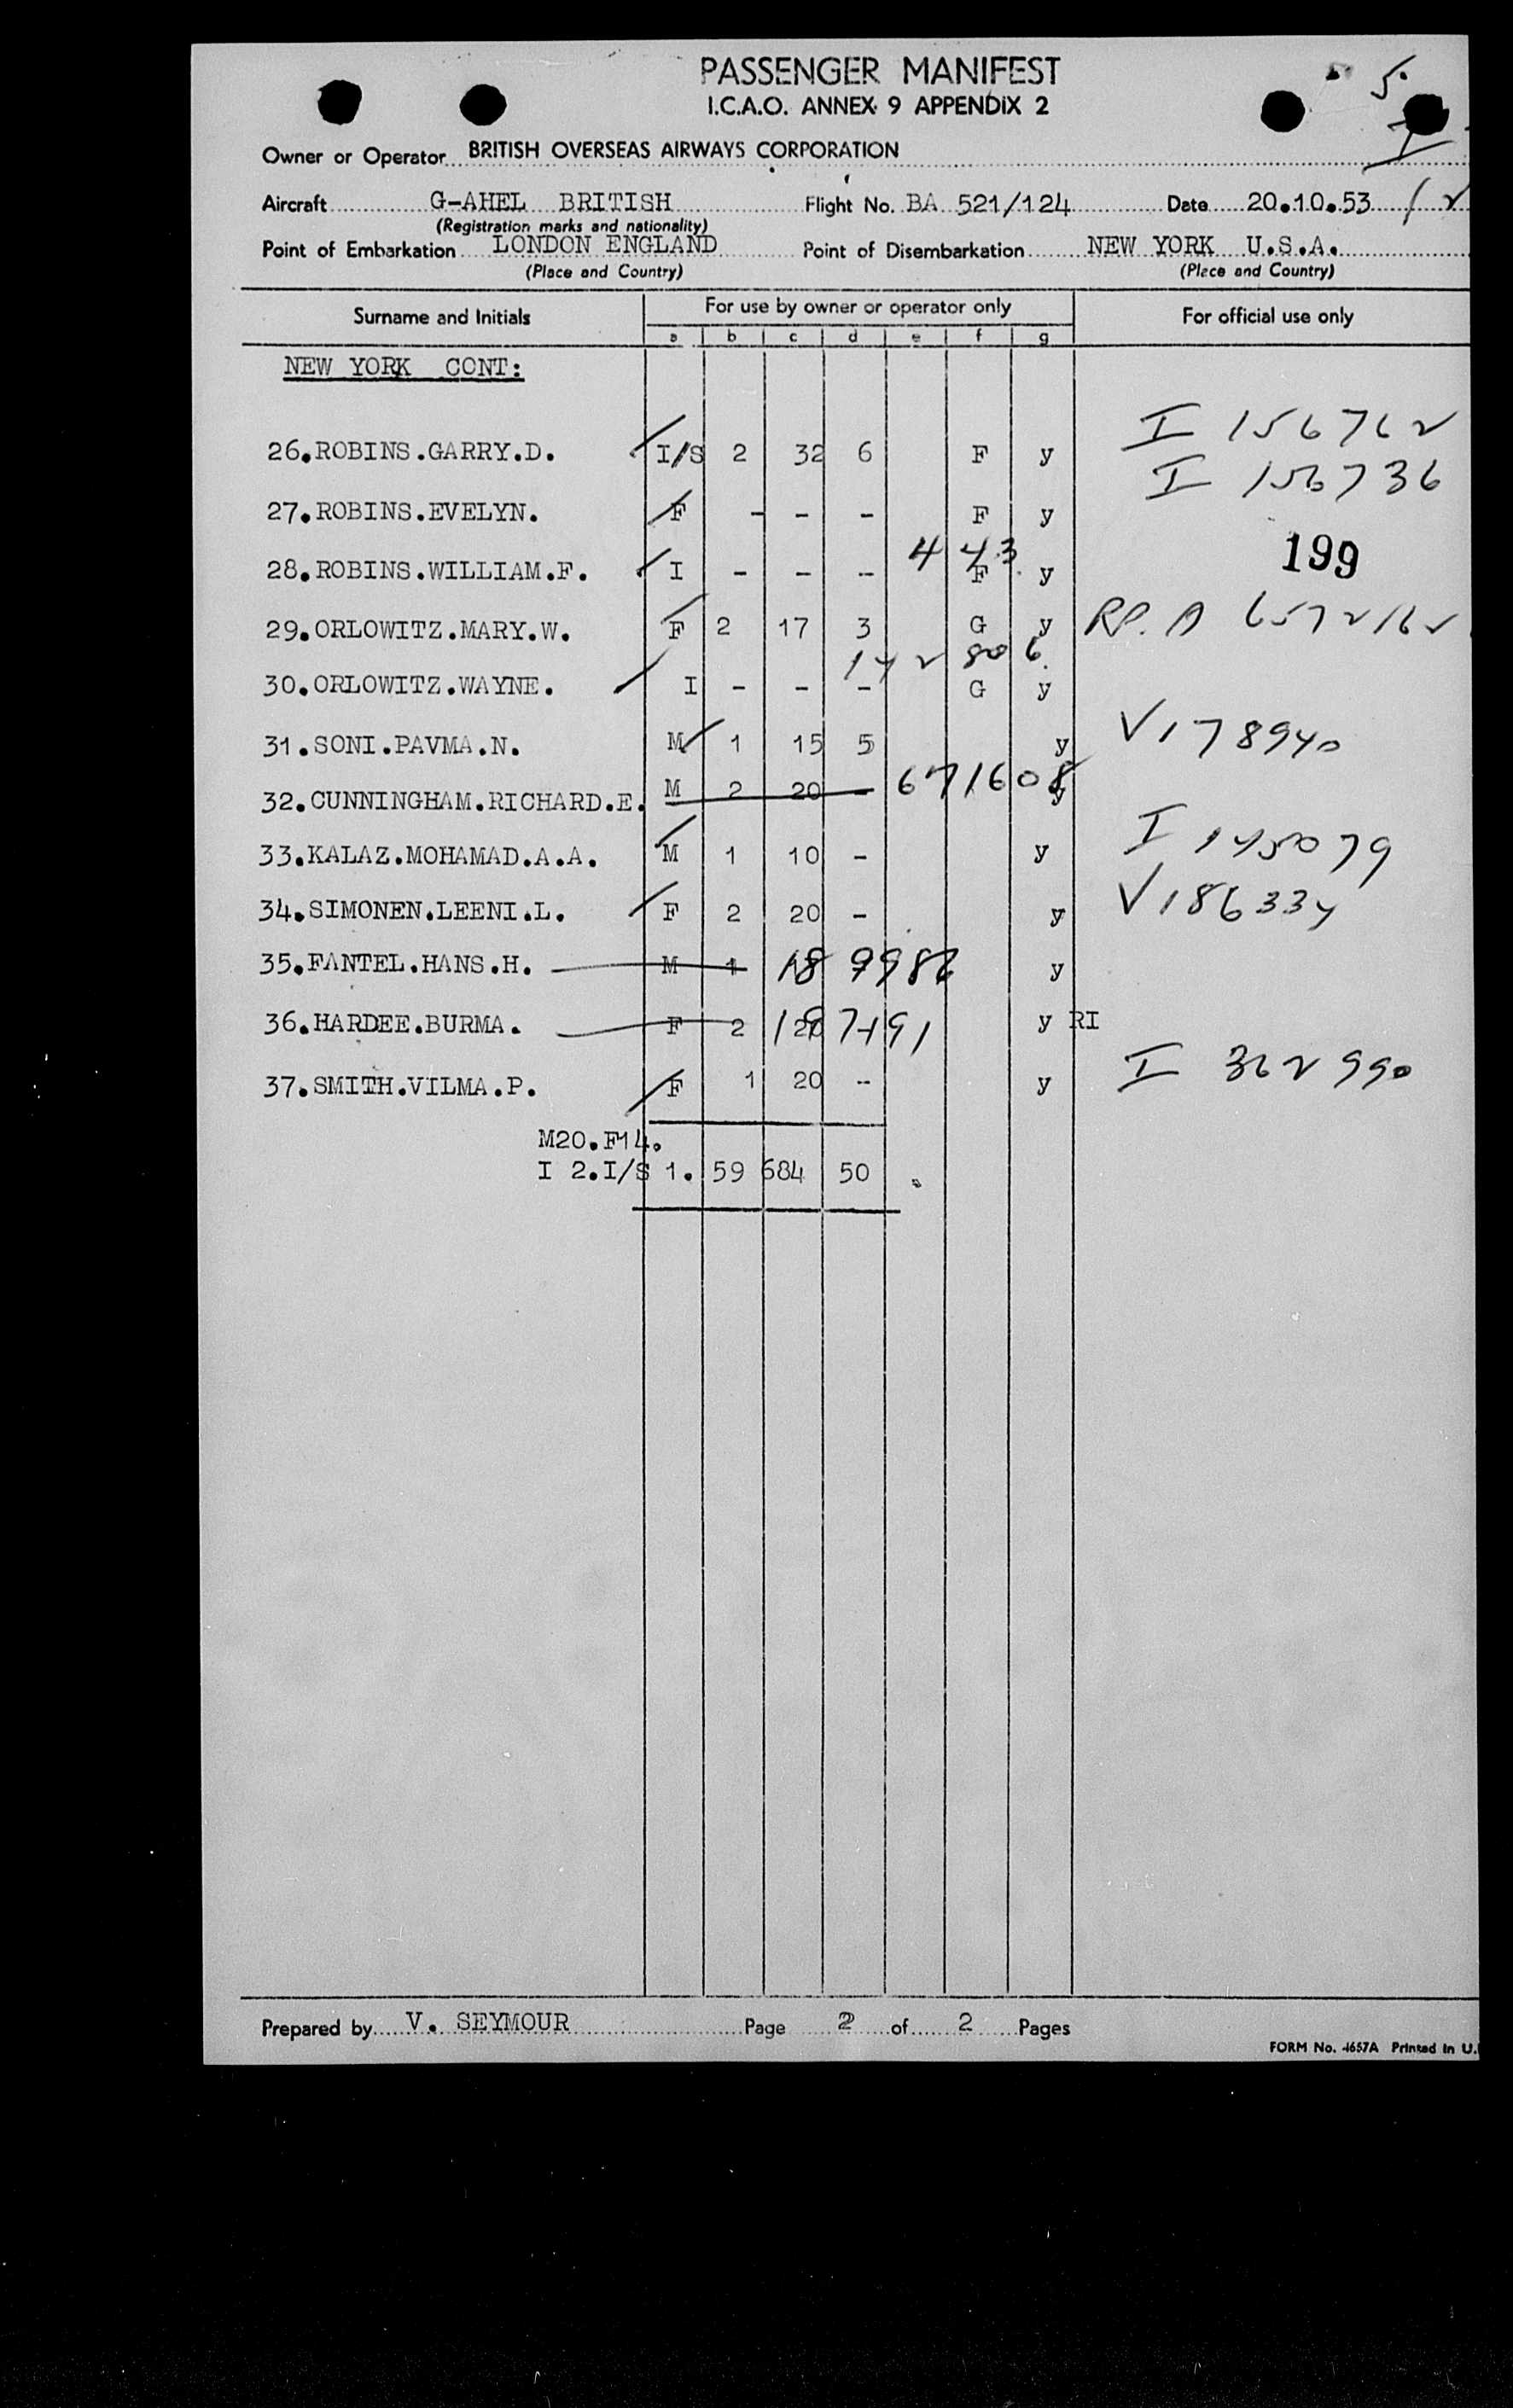 PASSENGER MANIFEST
I.C.A.O. ANNEX 9 APPENDIX 2
5.
Owner or Operator BRITISH OVERSEAS AIRWAYS CORPORATION
Aircraft G-AHEL BRITISH Flight No. BA 521/124 Date 20.10.53
(Registration marks and nationality)
Point of Embarkation LONDON ENGLAND Point of Disembarkation NEW YORK U.S.A.
(Place and Country) (Place and Country)
Surname and Initials For use by owner or operator only For official use only
a b c d e f g
NEW YORK CONT:
26.ROBINS.GARRY.D. I/S 2 32 6 F y I 156762
I 156736
27.ROBINS.EVELYN. F - - - F y
443
199
28.ROBINS.WILLIAM.F. I - - - F y
29.ORLOWITZ.MARY.W. F 2 17 3 G y RP. A 6572162
142806
30.ORLOWITZ.WAYNE. I - - - G y
31.SONI.PAVMA.N. M 1 15 5 y V178940
32.CUNNINGHAM.RICHARD.E. M 2 20 - 671608 y
33.KALAZ.MOHAMAD.A.A. M 1 10 - y I 145079
34.SIMONEN.LEENI.L. F 2 20 - y V186334
35.FANTEL.HANS.H. M 1 y
36.HARDEE.BURMA. F 2 20 y RI
37.SMITH.VILMA.P. F 1 20 - y I 362990
M20.F14.
I 2.I/S 1. 59 684 50
Prepared by V. SEYMOUR Page 2 of 2 Pages
FORM No. 4657A Printed in U.